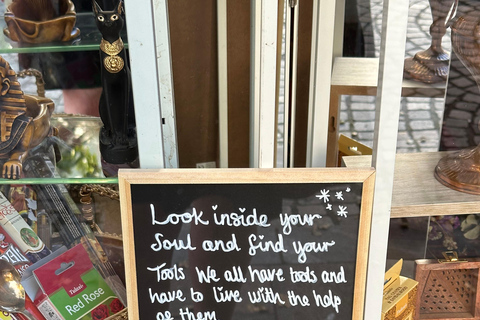 Look inside your
Soul and find your
Tools We all have tools and
have to live with the help
of them
Red Rose